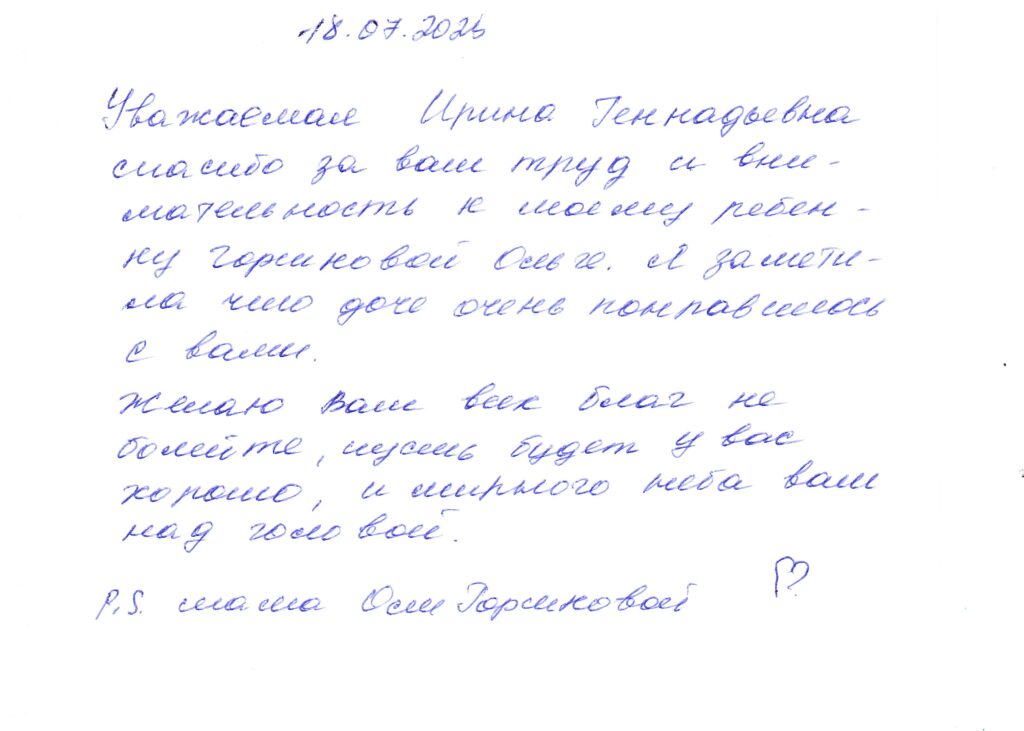 18.07.2023
Уважаемая Ирина Геннадьевна
спасибо за ваш труд и вни-
мательность к моему ребен-
ку Горшковой Ольге. Я замети-
ла что доче очень понравилось
с вами.
Желаю Вам всех благ не
болейте, пусть будет у вас
хорошо, и мирного неба вам
над головой.
P.S. мама Оли Горшковой